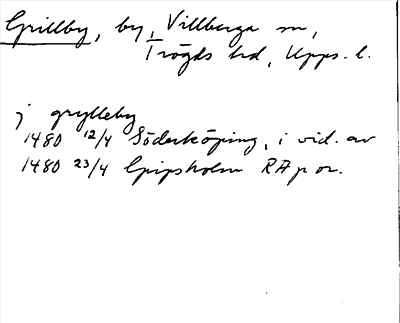 Grillby, by, Villberga sn,
Trögds hd, Upps. l.
j grylleby
1480 12/4 Söderköping, i vid. av
1480 23/4 Gripsholm RA p or.